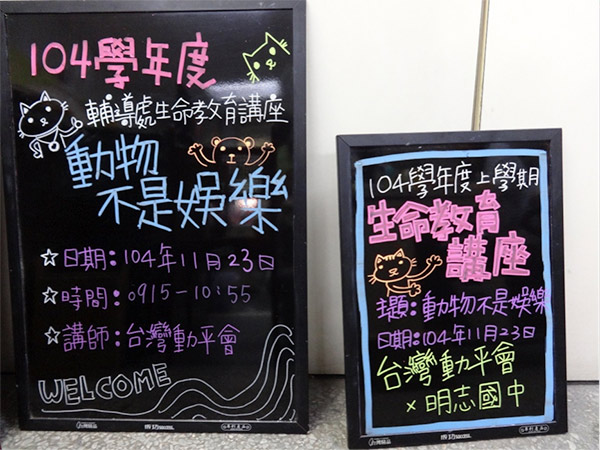 104學年度
輔導處生命教育講座
動物
不是娛樂
☆日期：104年11月23日
☆時間：0915-10:55
☆講師：台灣動平會
WELCOME
104學年度上學期
生命教育
講座
主題：動物不是娛樂
日期：104年11月23日
台灣動平會
×明志國中